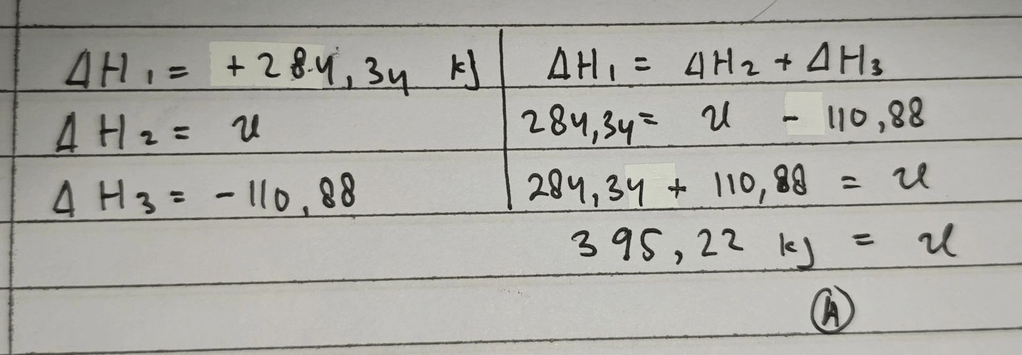 ΔH₁ = +284,34 kJ
ΔH₂ = x
ΔH₃ = -110,88
ΔH₁ = ΔH₂ + ΔH₃
284,34 = x - 110,88
284,34 + 110,88 = x
395,22 kJ = x
(A)